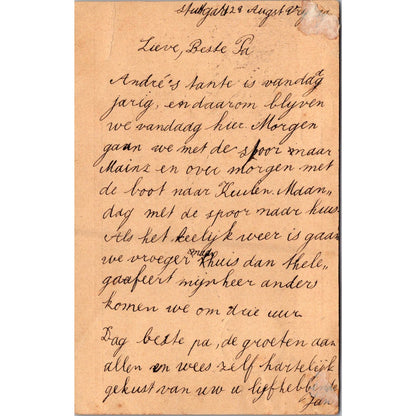 Stuttgart 28 Augst Vr
Lieve, Beste Pa
André's tante is vandag
jarig, en daarom blyven
we vandaag hier. Morgen
gaan we met de spoor naar
Mainz en over morgen met
de boot naar Keulen. Maan-
dag met de spoor naar huis
Als het leelijk weer is gaan
we vroeger naar thuis dan thele-
gaafeert mijnheer anders
komen we om drie uur.
Dag beste pa, de groeten aan
allen en wees zelf hartelijk
gekust van uw u liefhebbende
Jan